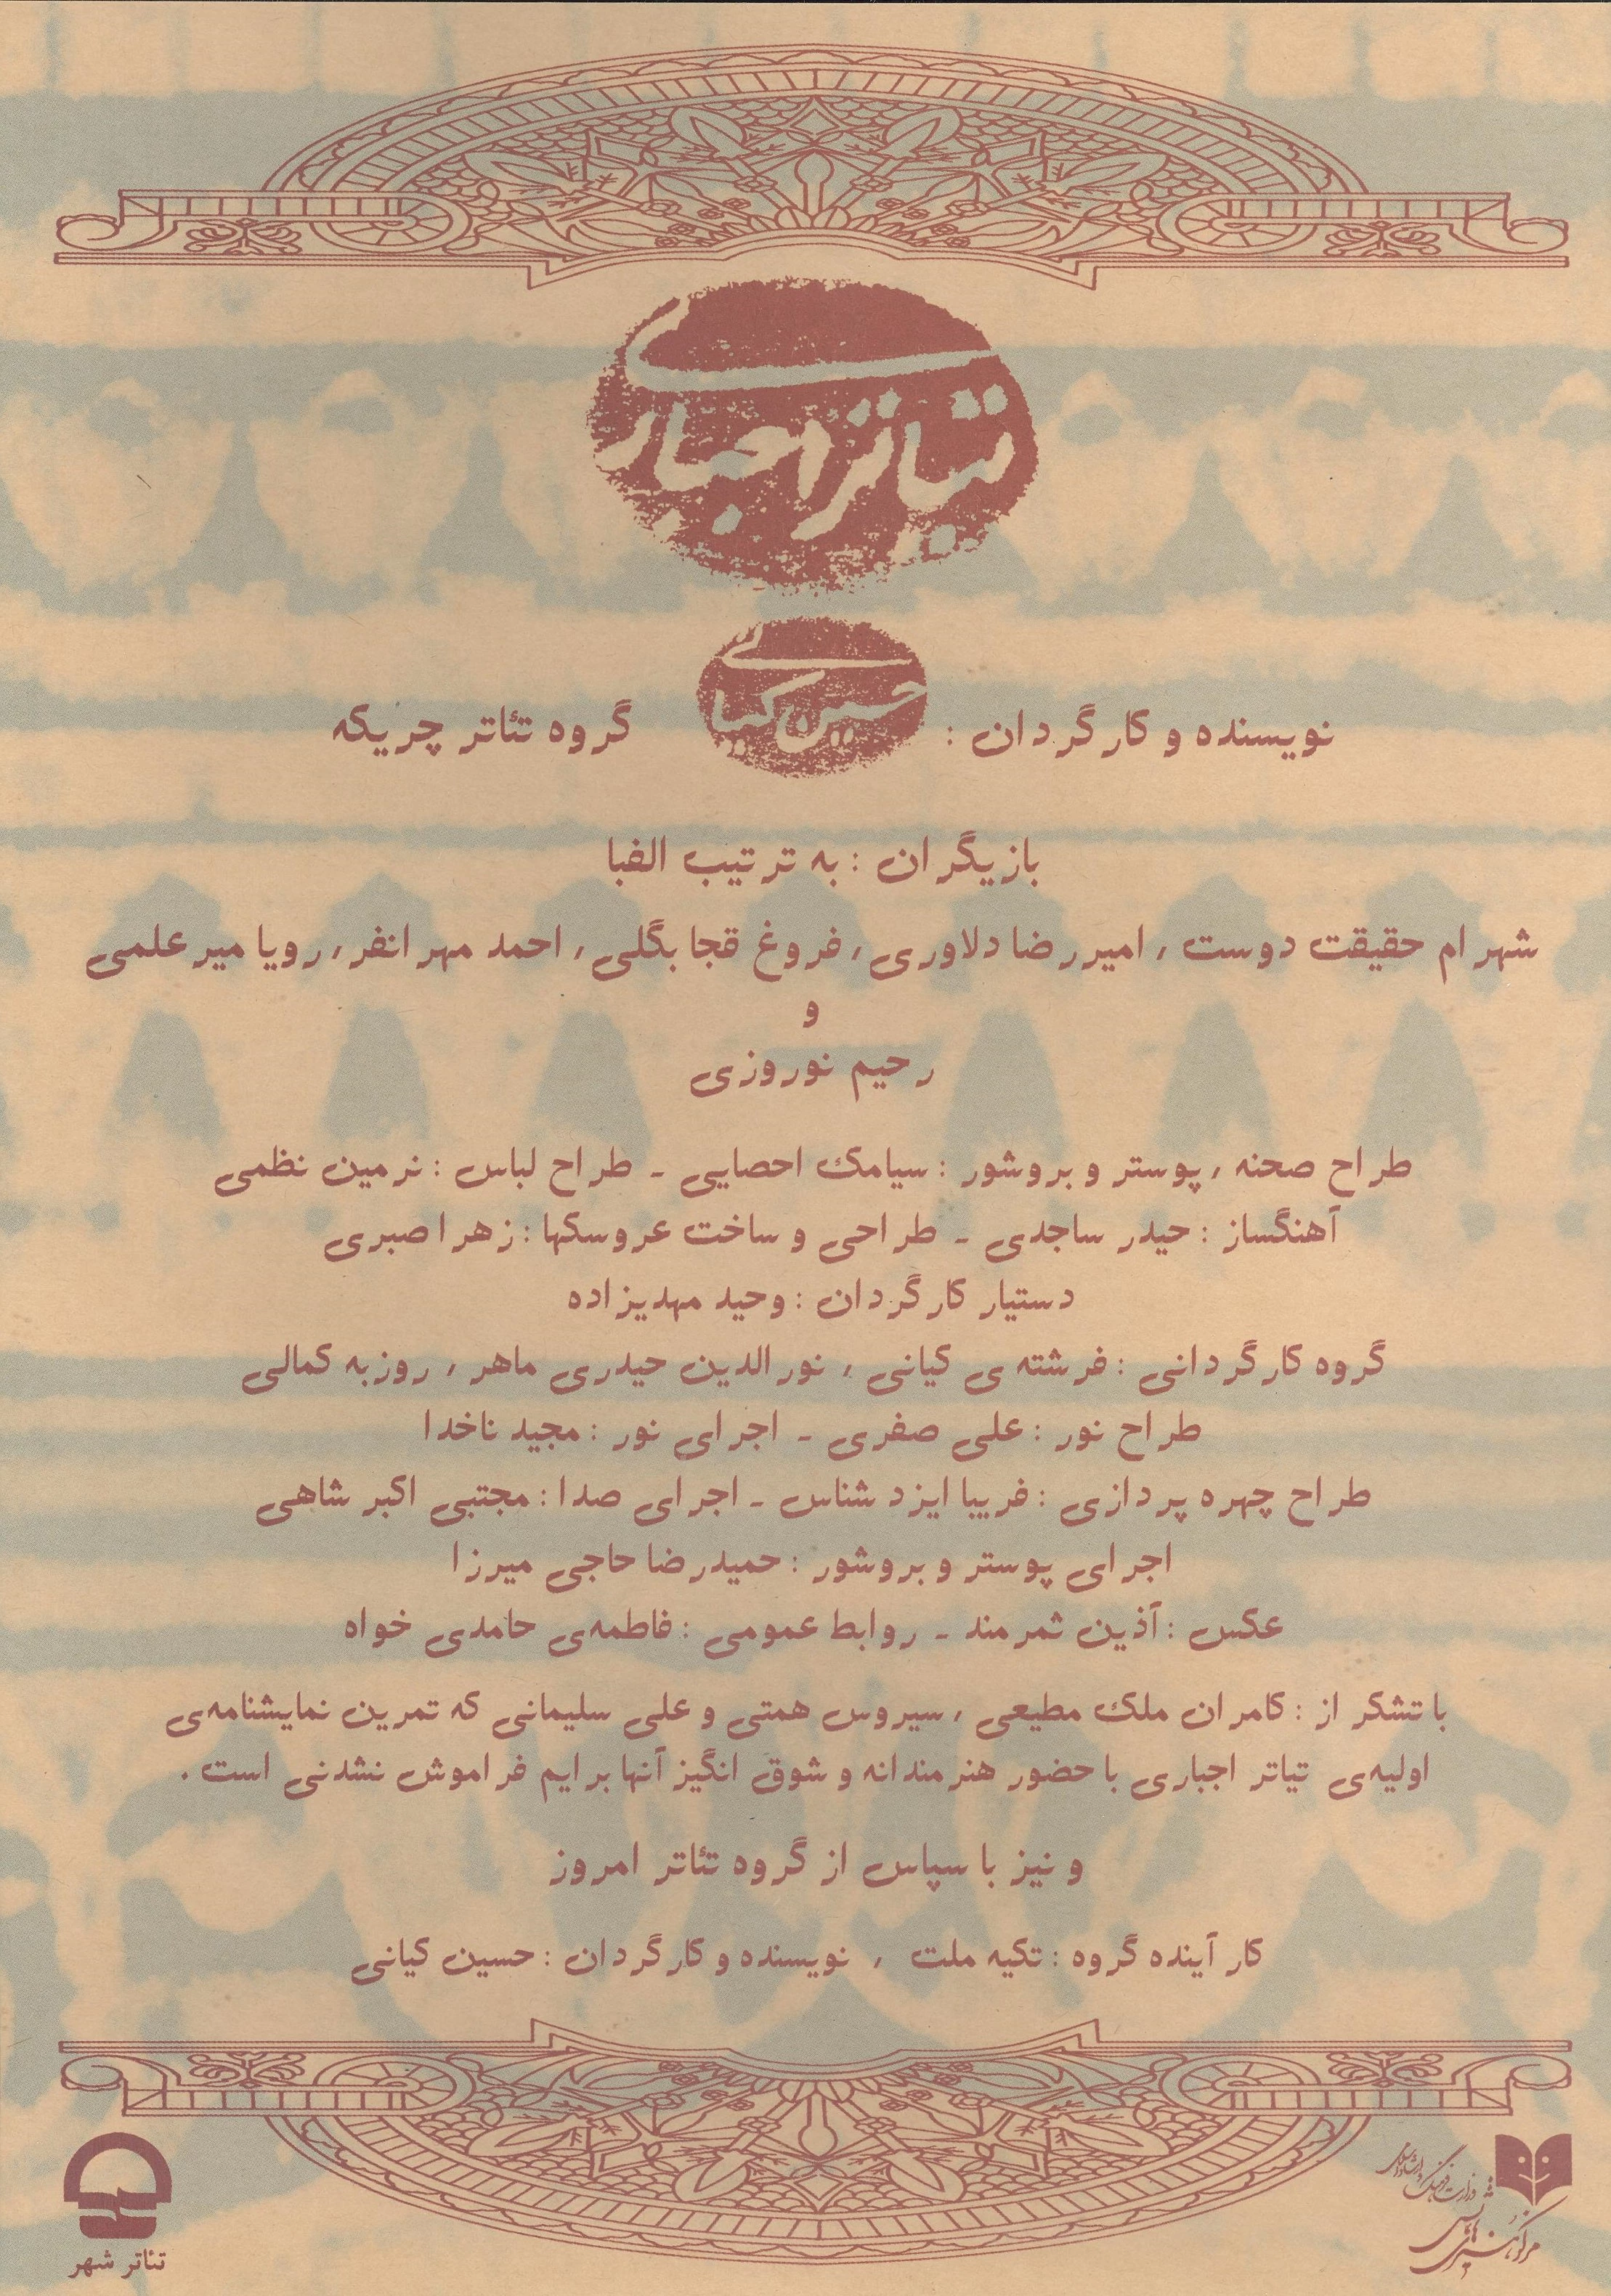 تیاتر اجباری
نویسنده و کارگردان : حسین کیانی گروه تئاتر چریکه
بازیگران : به ترتیب الفبا
شهرام حقیقت دوست ، امیررضا دلاوری ، فروغ قجابگلی ، احمد مهرانفر ، رویا میرعلمی
و
رحیم نوروزی
طراح صحنه ، پوستر و بروشور : سیامک احصایی ـ طراح لباس : نرمین نظمی
آهنگساز : حیدر ساجدی ـ طراحی و ساخت عروسکها : زهرا صبری
دستیار کارگردان : وحید مهدیزاده
گروه کارگردانی : فرشته ی کیانی ، نورالدین حیدری ماهر ، روزبه کمالی
طراح نور : علی صفری ـ اجرای نور : مجید ناخدا
طراح چهره پردازی : فریبا ایزد شناس ـ اجرای صدا : مجتبی اکبر شاهی
اجرای پوستر و بروشور : حمیدرضا حاجی میرزا
عکس : آذین ثمرمند ـ روابط عمومی : فاطمه‌ی حامدی خواه
با تشکر از : کامران ملک مطیعی ، سیروس همتی و علی سلیمانی که تمرین نمایشنامه‌ی
اولیه‌ی تیاتر اجباری با حضور هنرمندانه و شوق انگیز آنها برایم فراموش نشدنی است .
و نیز با سپاس از گروه تئاتر امروز
کار آینده گروه : تکیه ملت ، نویسنده و کارگردان : حسین کیانی
وزارت فرهنگ و ارشاد اسلامی
مرکز هنرهای نمایشی
تئاتر شهر